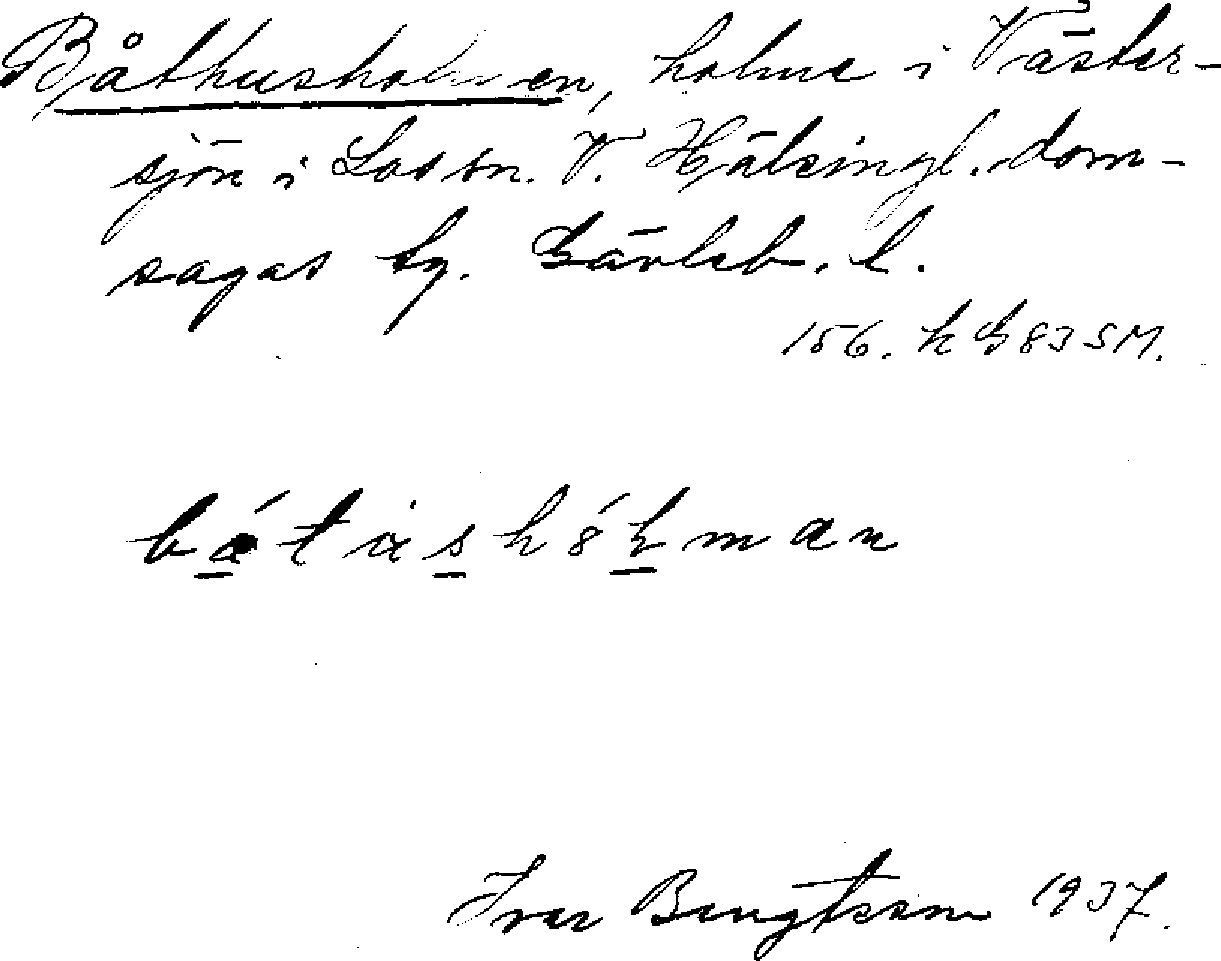 Båthusholmen, holme i Väster-
sjön i Los sn. V. Hälsingl. dom-
sagas tg. Gävleb. l.
156. h G 83 SM.
Ivar Bengtsson 1937.